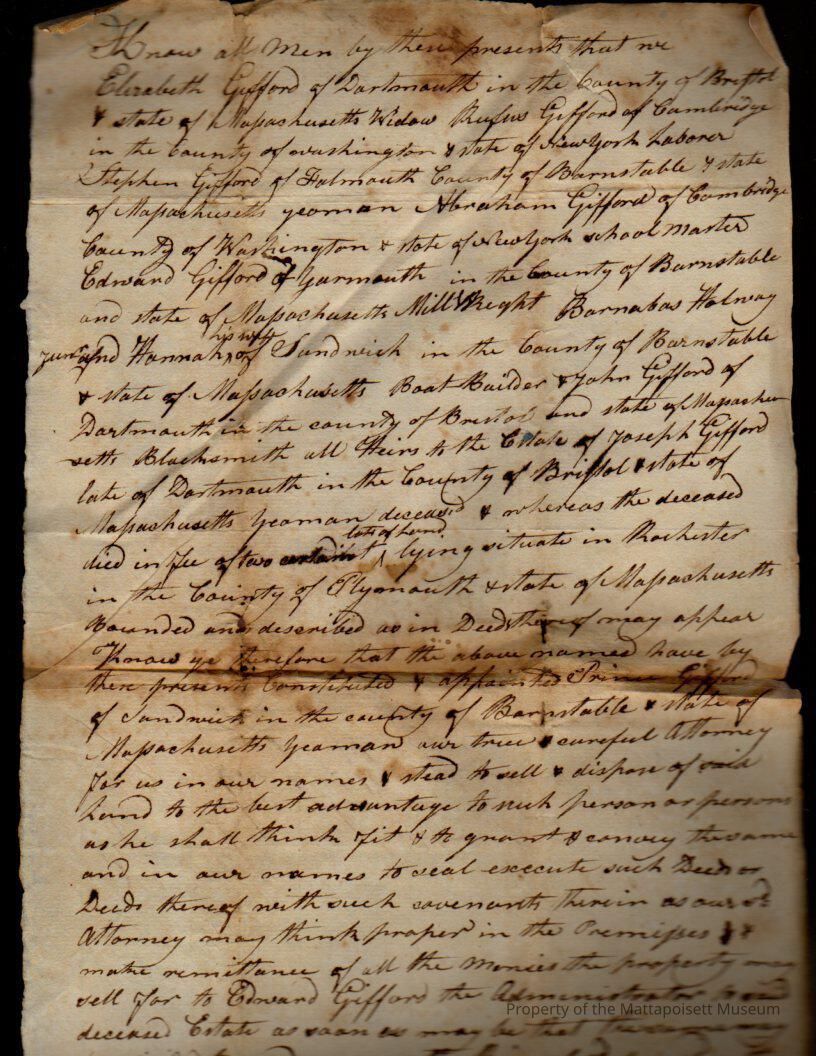 Know all Men by these presents that we
Elizabeth Gifford of Dartmouth in the County of Bristol
& state of Massachusetts Widow Rufus Gifford of Cambridge
in the County of washington & state of New York Laborer
Stephen Gifford of Falmouth County of Barnstable & state
of Massachusetts yeoman Abraham Gifford of Cambridge
County of Washington & state of New York school master
Edward Gifford of Yarmouth in the County of Barnstable
and state of Massachusetts Mill Wright Barnabas Holway
Junr and Hannah his wife of Sandwich in the County of Barnstable
& state of Massachusetts Boat Builder & John Gifford of
Dartmouth in the county of Bristol and state of Massachu
setts Blacksmith all Heirs to the Estate of Joseph Gifford
late of Dartmouth in the County of Bristol & state of
Massachusetts Yeoman deceased & whereas the deceased
died in fee of two certain lots of Land lying situate in Rochester
in the County of Plymouth & state of Massachusetts
Bounded and described as in Deeds thereof may appear
Know ye therefore that the above named have by
these presents Constituted & appointed Prince Gifford
of Sandwich in the county of Barnstable & state of
Massachusetts Yeoman our true & careful Attorney
for us in our names & stead to sell & dispose of said
Land to the best advantage to such person or persons
as he shall think fit & to grant & convey the same
and in our names to seal execute such Deed or
Deeds thereof with such covenants therein as our sd
Attorney may think proper in the Premisses &
make remittance of all the monies the property may
sell for to Edward Gifford the Administrator
deceased Estate as soon as may be that the same may
Property of the Mattapoisett Museum